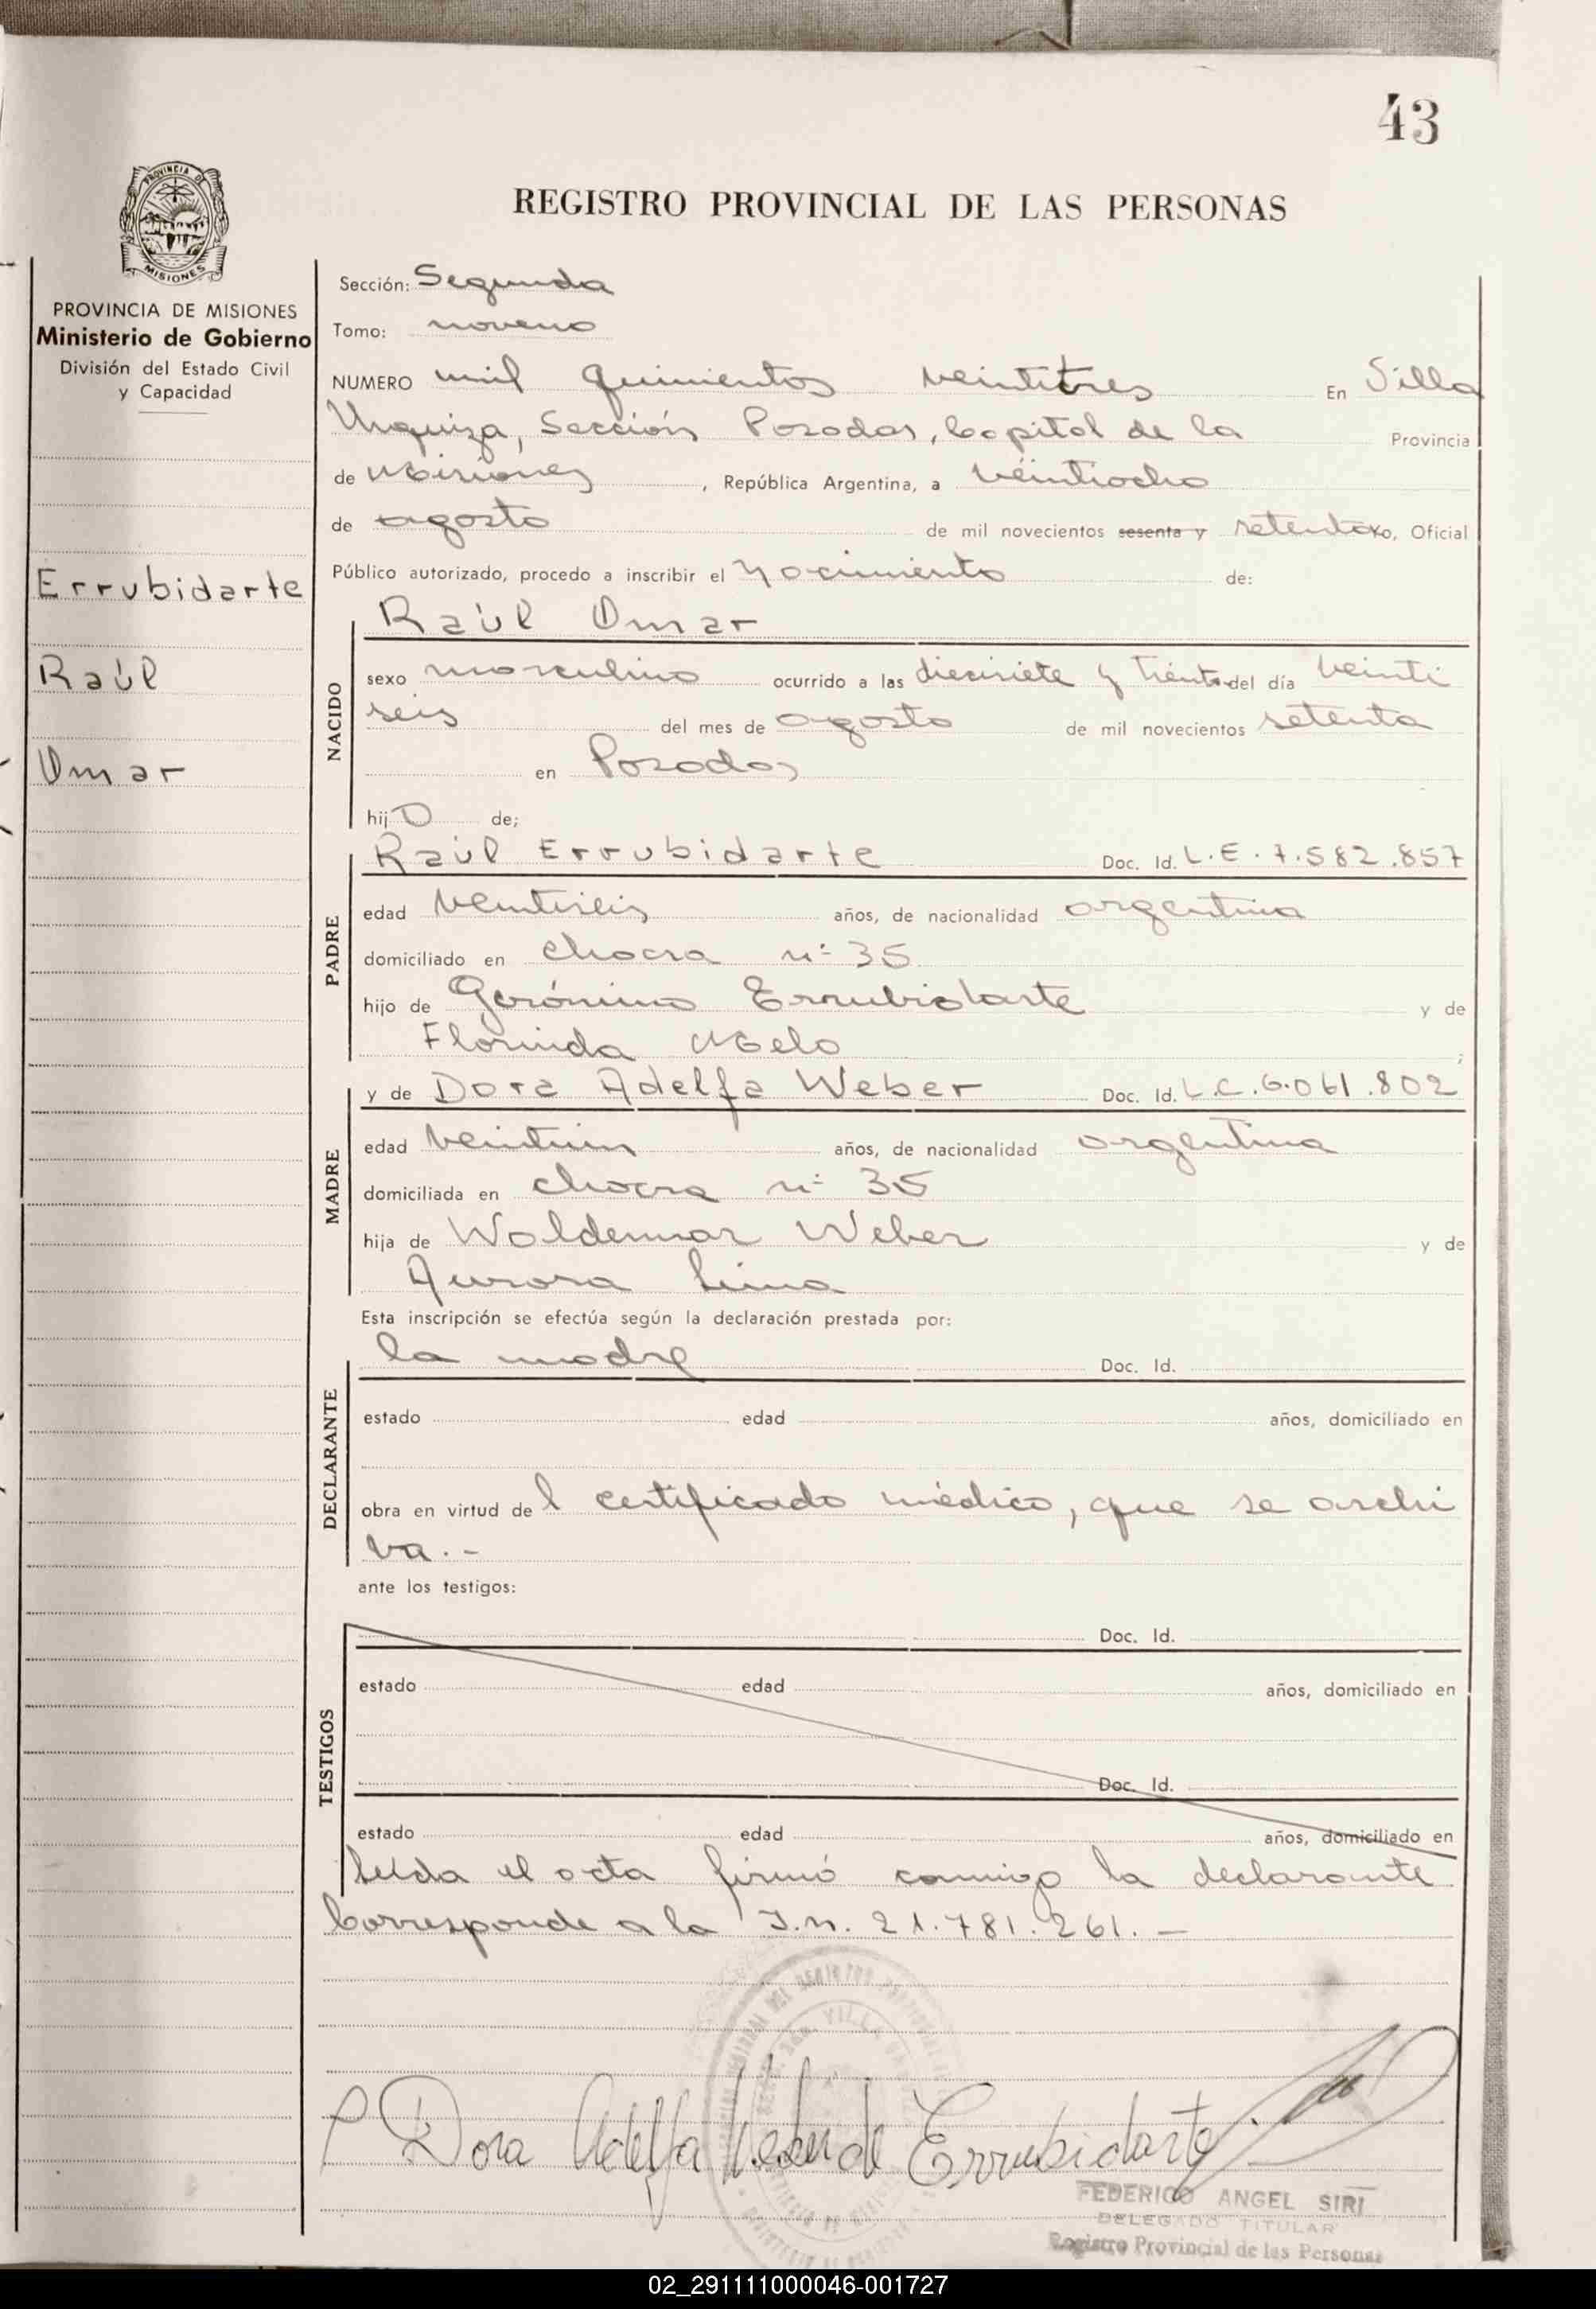 43
REGISTRO PROVINCIAL DE LAS PERSONAS
PROVINCIA DE
MISIONES
PROVINCIA DE MISIONES
Ministerio de Gobierno
División del Estado Civil
y Capacidad
Errubidarte
Raúl
Omar
Sección: Segunda
Tomo: noveno
NUMERO mil quinientos veintitres En Villa
Urquiza, Sección Posadas, Capital de la Provincia
de Misiones, República Argentina, a veintiocho
de agosto de mil novecientos sesenta y setenta yo, Oficial
Público autorizado, procedo a inscribir el nacimiento de:
NACIDO
Raúl Omar
sexo masculino ocurrido a las diecisiete y treinta del día veinti
seis del mes de agosto de mil novecientos setenta
en Posadas
hijo de;
PADRE
Raúl Errubidarte Doc. Id. L.E. 7.582.857
edad veintiseis años, de nacionalidad argentina
domiciliado en chacra nº 35
hijo de Gerónimo Errubidarte y de
Florinda Melo ;
MADRE
y de Dora Adelfa Weber Doc. Id. L.C. 6.061.802
edad veintiun años, de nacionalidad argentina
domiciliada en chacra nº 35
hija de Woldemar Weber y de
Aurora Lima
Esta inscripción se efectúa según la declaración prestada por:
DECLARANTE
la madre Doc. Id.
estado edad años, domiciliado en
obra en virtud del certificado médico, que se archi
va.-
ante los testigos:
TESTIGOS
Doc. Id.
estado edad años, domiciliado en
Doc. Id.
estado edad años, domiciliado en
Leída el acta firmó conmigo la declarante
Corresponde a la I.n. 21.781.261.-
Dora Adelfa Weber de Errubidarte
FEDERICO ANGEL SIRI
DELEGADO TITULAR
Registro Provincial de las Personas
02_291111000046-001727